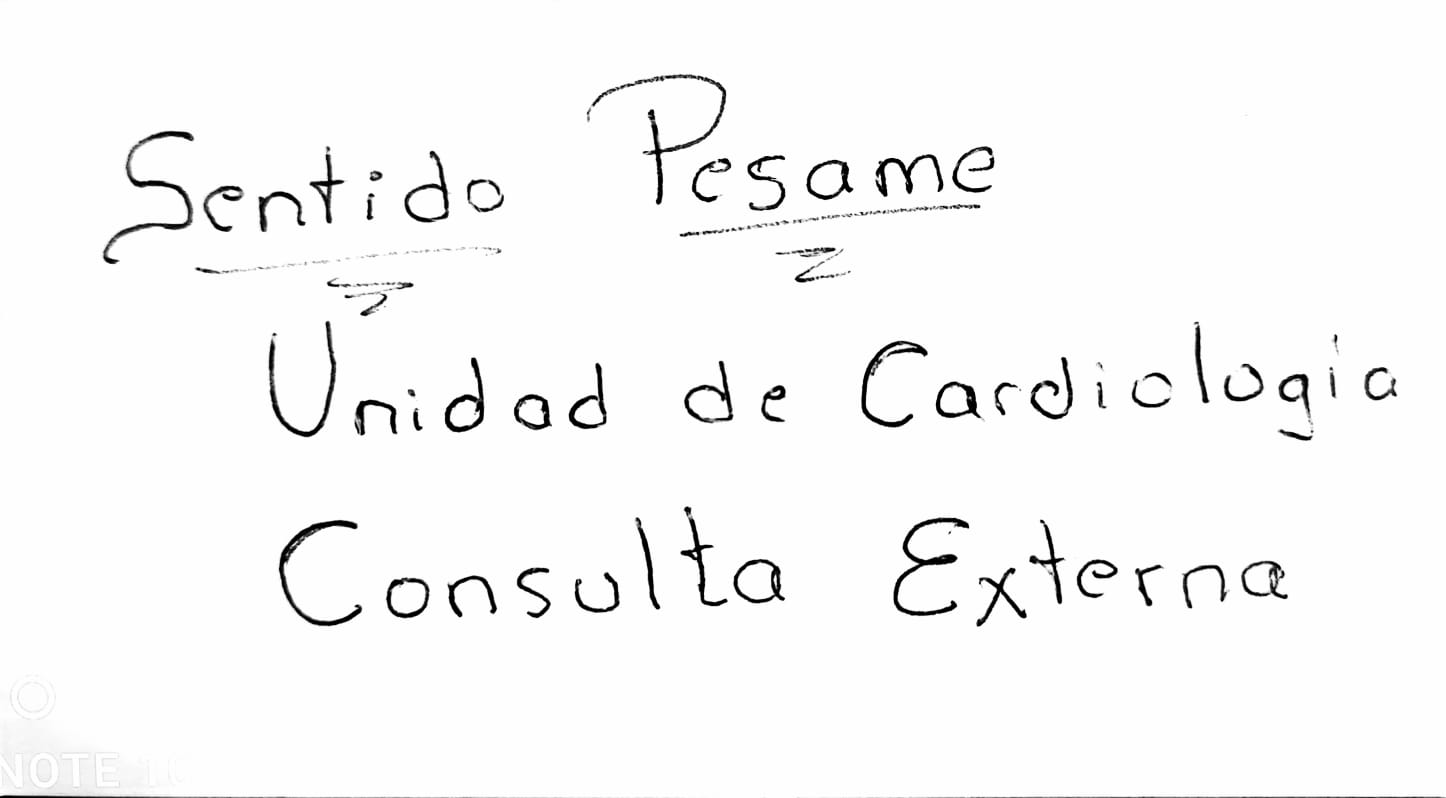 Sentido Pesame
Unidad de Cardiología
Consulta Externa
NOTE 10